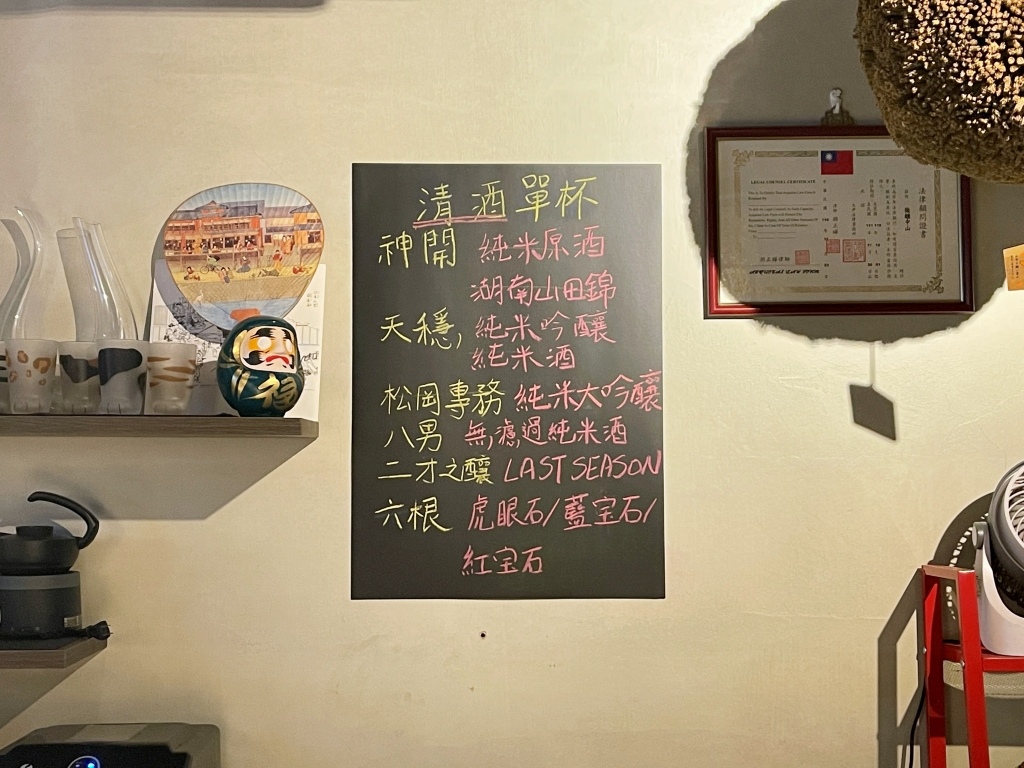 清酒單杯
神開 純米原酒
湖南山田錦
天穩, 純米吟釀
純米酒
松岡專務 純米大吟釀
八男 無濾過純米酒
二才之釀 LAST SEASON
六根 虎眼石/藍宝石/
紅宝石
福
LEGAL COUNSEL CERTIFICATE
法律顧問證書